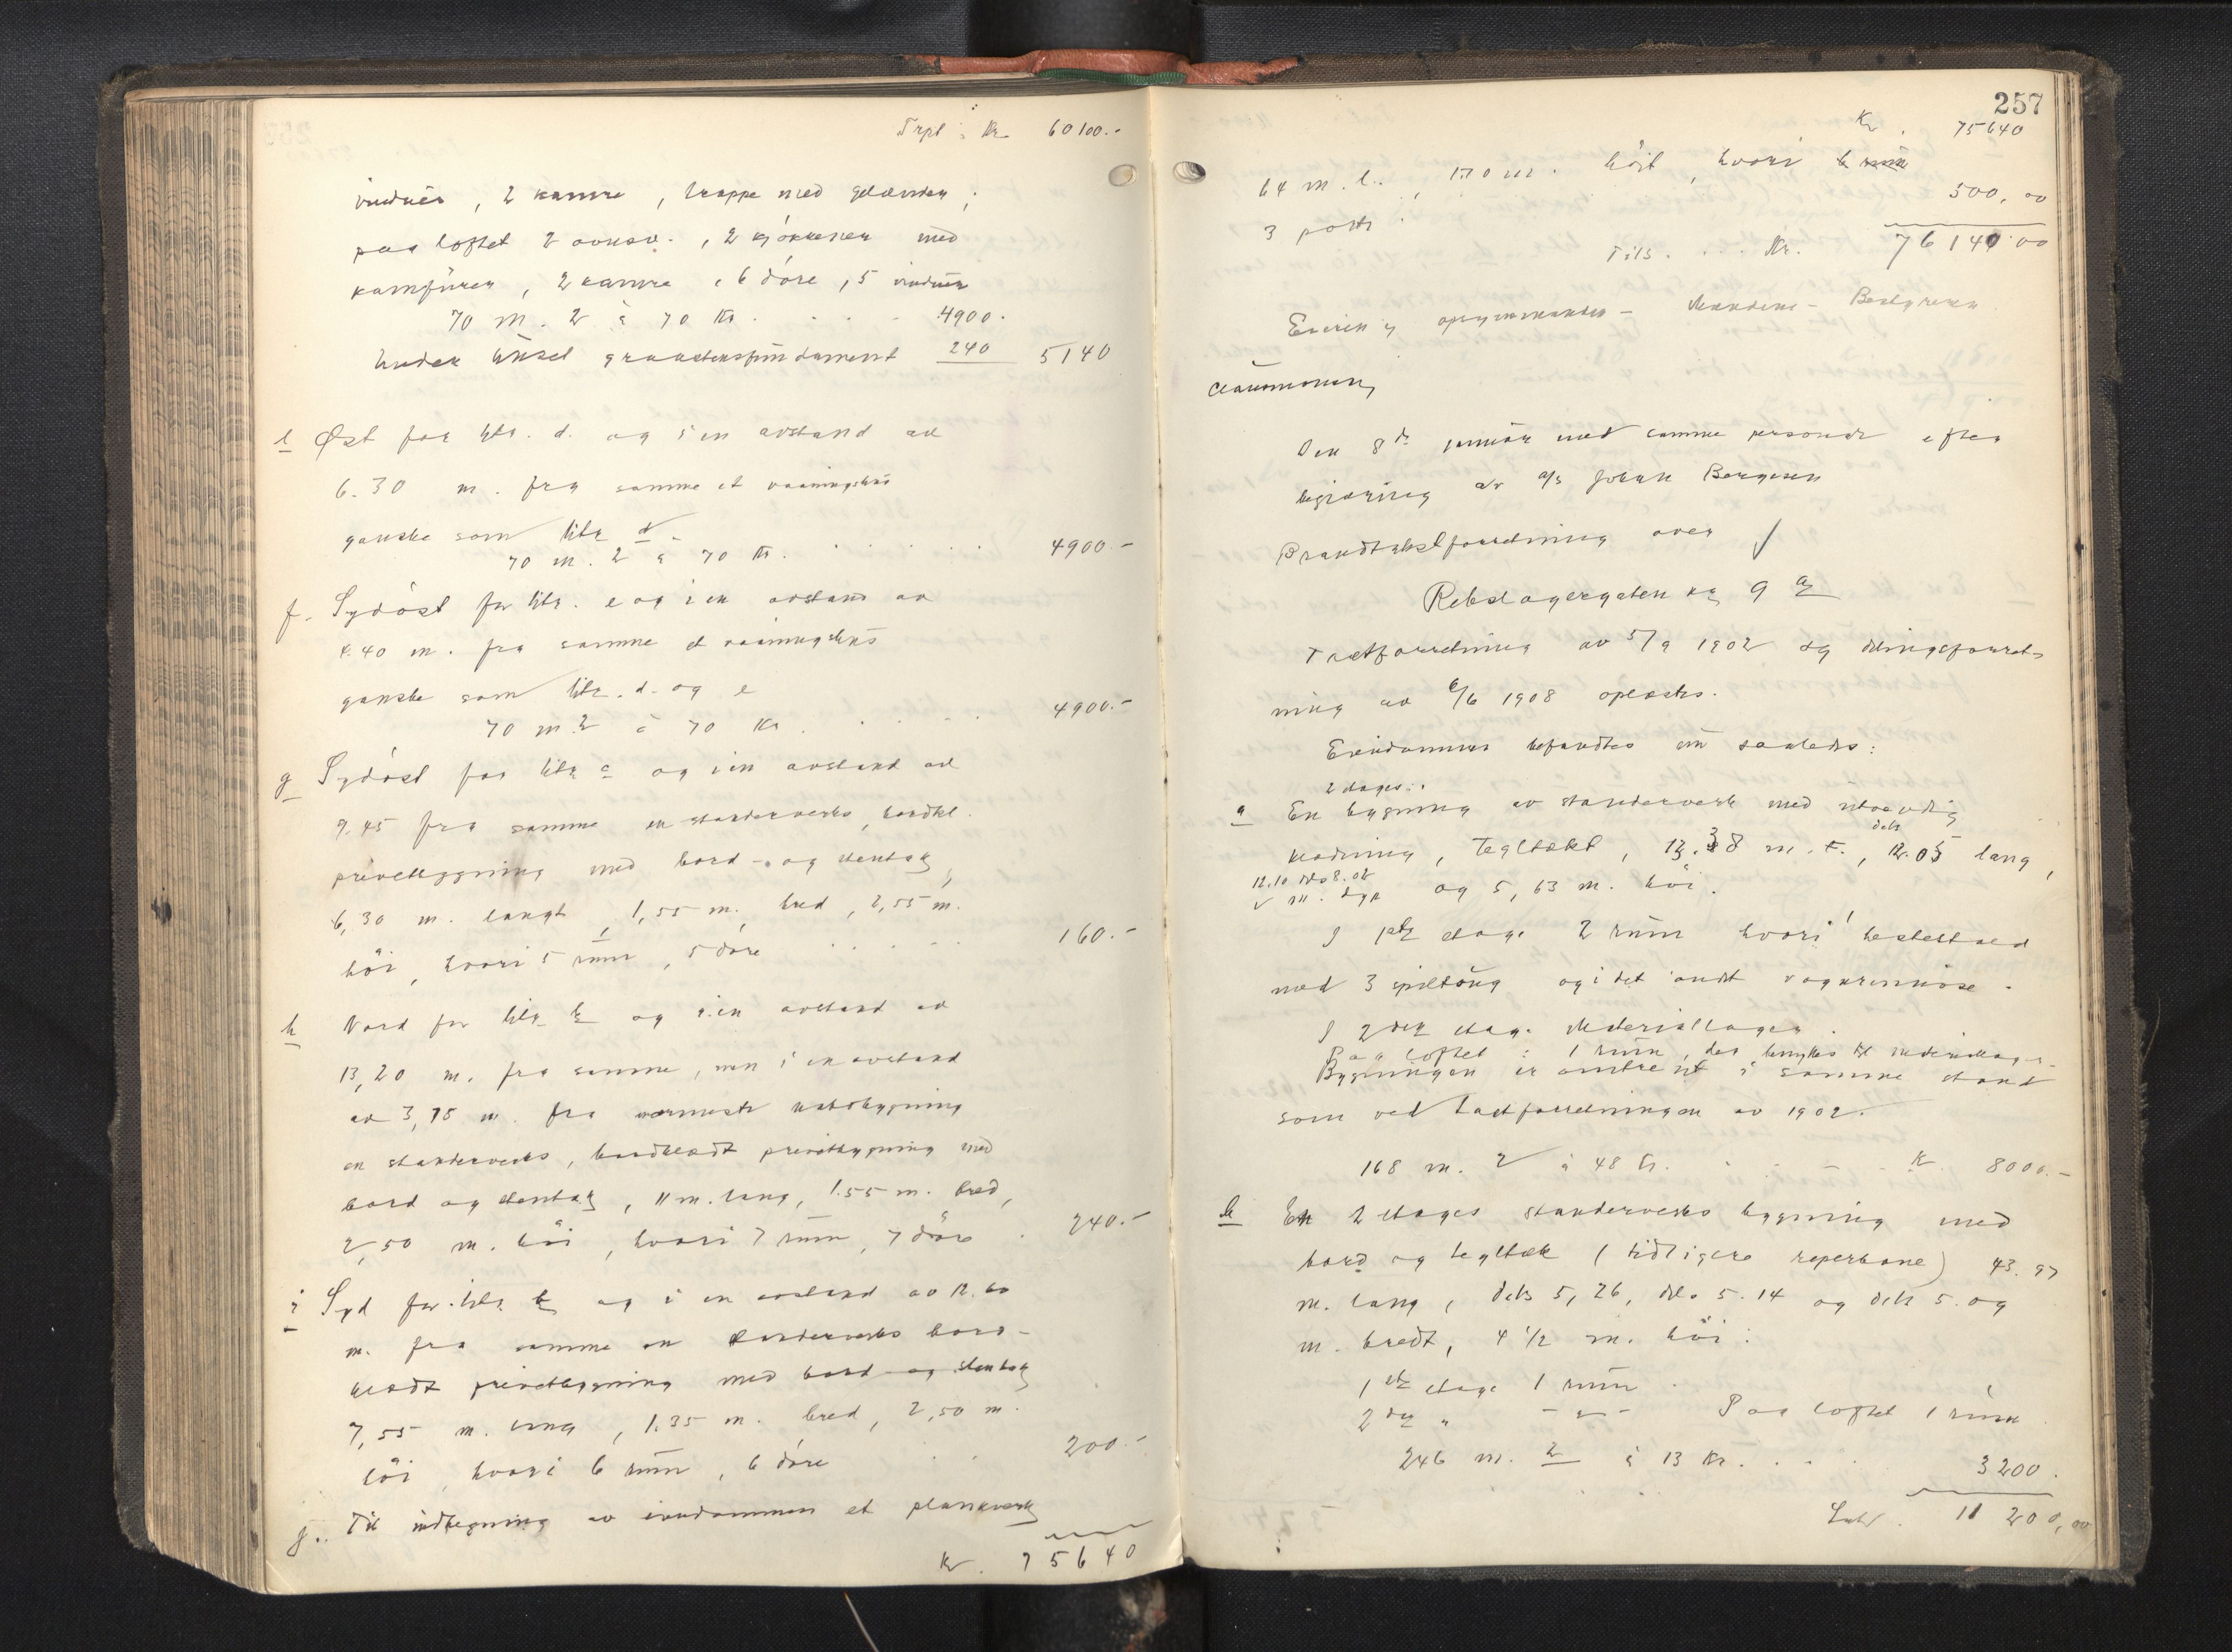 Trpt: Kr. 60100.-
vinduer, 2 kamre, trappe med gelænder,
paa loftet 2 , 2 kjøkkener med
komfürer, 2 kamre, 6 döre, 5 vinduer
70 m. 2 à 70 Kr. . . . 4900.
Under hüset graastensfündament 240 5140
e Øst for litr. d. og i en avstand av
6.30 m. fra samme et vaaningshüs
ganske som litr d.
70 m. 2 à 70 Kr. . . . . . 4900.-
f. Sydöst for litr. e og i en avstand av
4.40 m. fra samme et vaaningshüs
ganske som litr. d. og e
70 m. 2 à 70 Kr. . . . . 4900.-
g Sydöst for litr c og i en avstand av
9.45 fra samme en standerverks, bordkl.
privetbygning med bord- og stentag
6,30 m. langt, 1,55 m. bred, 2,55 m.
höi, hvori 5 rüm, 5 döre . . . . . 160.-
h Nord for litr b og i en avstand av
13,20 m. fra samme, men i en avstand
av 3,75 m. fra nærmeste nabobygning
en standerverks, bordklædt privetbygning med
bord og stentag, 11 m. lang, 1.55 m. bred,
2,50 m. höi, hvori 7 rüm, 7 döre . 240.-
i Syd for litr b og i en avstand av 12.60
m. fra samme en standerverks bord-
klædt privetbygning med bord og stentag
7,55 m. lang, 1.35 m. bred, 2,50 m.
höi, hvori 6 rüm, 6 döre . . 200.-
j. Til indhegning av eiendommen et plankverk
Kr. 75640
257
Kr. 75640
64 m. l., 1.70 m. höit, hvori
3 porte . 500,00
Tils. . . . Kr. 76140.00
Den 8de januar med samme personale efter
begjæring av a/s Johan Borgesen
Brandtakstforretning over
Rebslagergaten nr 9 a
Takstforretning av 5/9 1902 og delingsforret-
ning av 6/6 1908 oplæstes.
Eiendommen befandtes nü saaledes:
2 etages
a En bygning av standerverk med utvendig
klædning, tegltækt, 13.38 m. f., dels 12.05 lang,
12.10 dels 8.02
m. dyp og 5,63 m. höi.
I 1ste etage 2 rüm hvori hestestald
med 3 spiltoug og i det andet vognremisse.
I 2den etage Materiallager.
Paa loftet: 1 rüm, der benyttes til materiallager
Bygningen er omtrent i samme stand
som ved takstforretningen av 1902.
168 m. 2 à 48 Kr. . . . . Kr. 8000.-
b En 2 etages standerverks bygning med
bord og tegltak (tidligere reperbane) 43.97
m. lang, dels 5,26, dels 5.14 og dels 5.09
m. bredt, 4 1/2 m. höi:
1ste etage 1 rüm .
2den " - " - Paa loftet 1 rüm
246 m. 2 à 13 Kr. . . . 3200.
Lateris 11 200,00